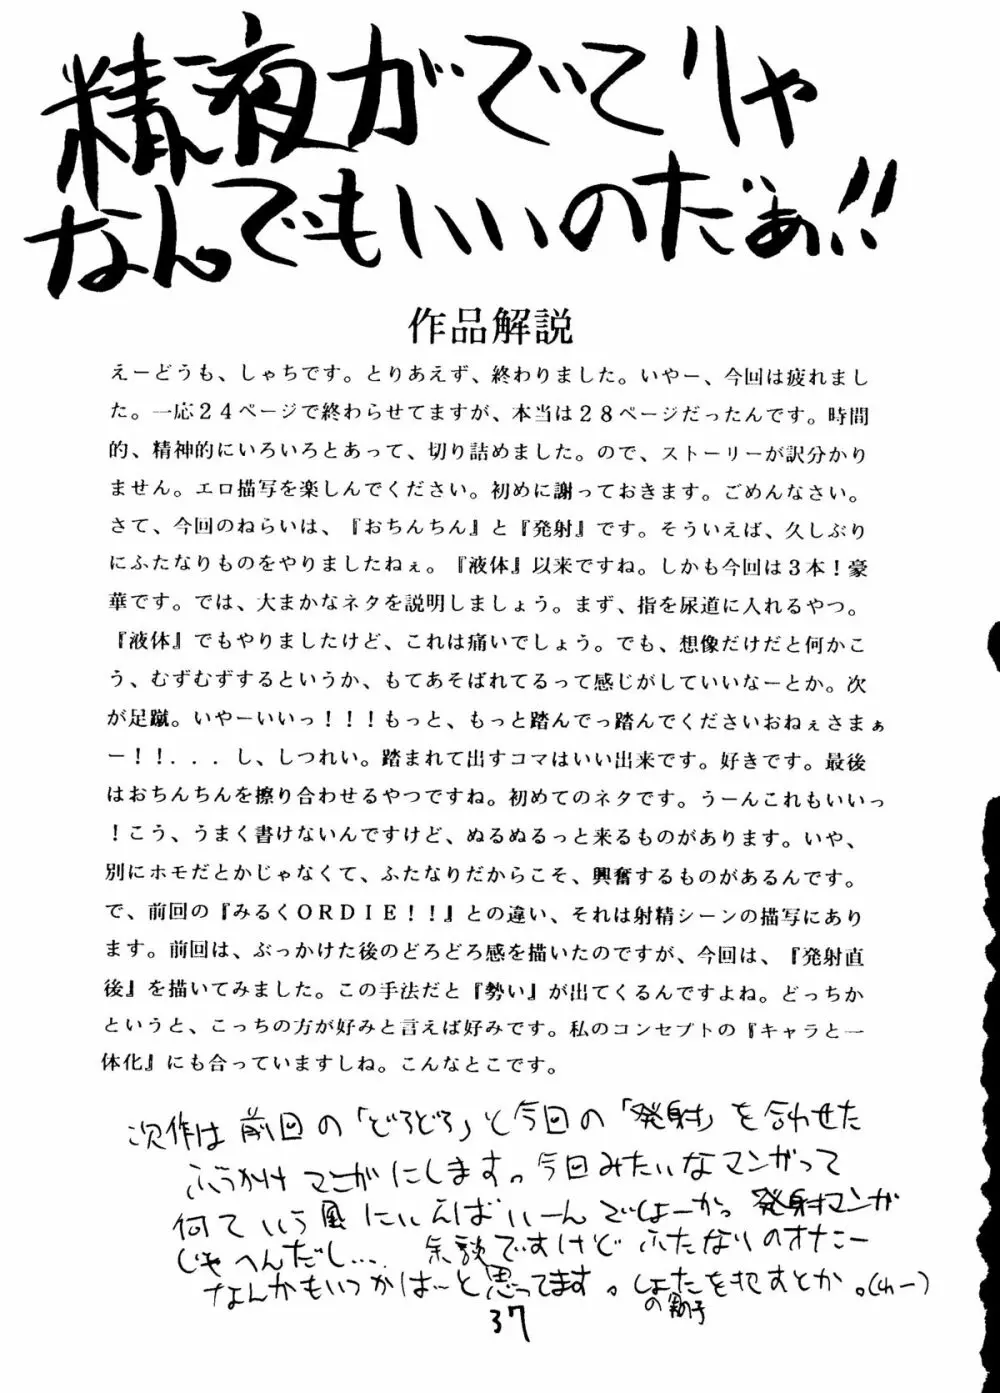 精液がでてりゃ
なんでもいいのだぁ!!
作品解説
えーどうも、しゃちです。とりあえず、終わりました。いやー、今回は疲れまし
た。一応24ページで終わらせてますが、本当は28ページだったんです。時間
的、精神的にいろいろとあって、切り詰めました。ので、ストーリーが訳分かり
ません。エロ描写を楽しんでください。初めに謝っておきます。ごめんなさい。
さて、今回のねらいは、『おちんちん』と『発射』です。そういえば、久しぶり
にふたなりものをやりましたねぇ。『液体』以来ですね。しかも今回は3本!豪
華です。では、大まかなネタを説明しましょう。まず、指を尿道に入れるやつ。
『液体』でもやりましたけど、これは痛いでしょう。でも、想像だけだと何かこ
う、むずむずするというか、もてあそばれてるって感じがしていいなーとか。次
が足蹴。いやーいいっ!!!もっと、もっと踏んでっ踏んでくださいおねぇさまぁ
ー!!...し、しつれい。踏まれて出すコマはいい出来です。好きです。最後
はおちんちんを擦り合わせるやつですね。初めてのネタです。うーんこれもいいっ
!こう、うまく書けないんですけど、ぬるぬるっと来るものがあります。いや、
別にホモだとかじゃなくて、ふたなりだからこそ、興奮するものがあるんです。
で、前回の『みるくORDIE!!』との違い、それは射精シーンの描写にあり
ます。前回は、ぶっかけた後のどろどろ感を描いたのですが、今回は、『発射直
後』を描いてみました。この手法だと『勢い』が出てくるんですよね。どっちか
というと、こっちの方が好みと言えば好みです。私のコンセプトの『キャラと一
体化』にも合っていますしね。こんなとこです。
次作は前回の「どろどろ」と今回の「発射」を合わせた
ぶっかけマンガにします。今回みたいなマンガって
何ていう風にいえばいーんでしょーかっ 発射マンガ
じゃへんだし... 余談ですけどふたなりのオナニー
なんかもいつかは…と思ってます。
37